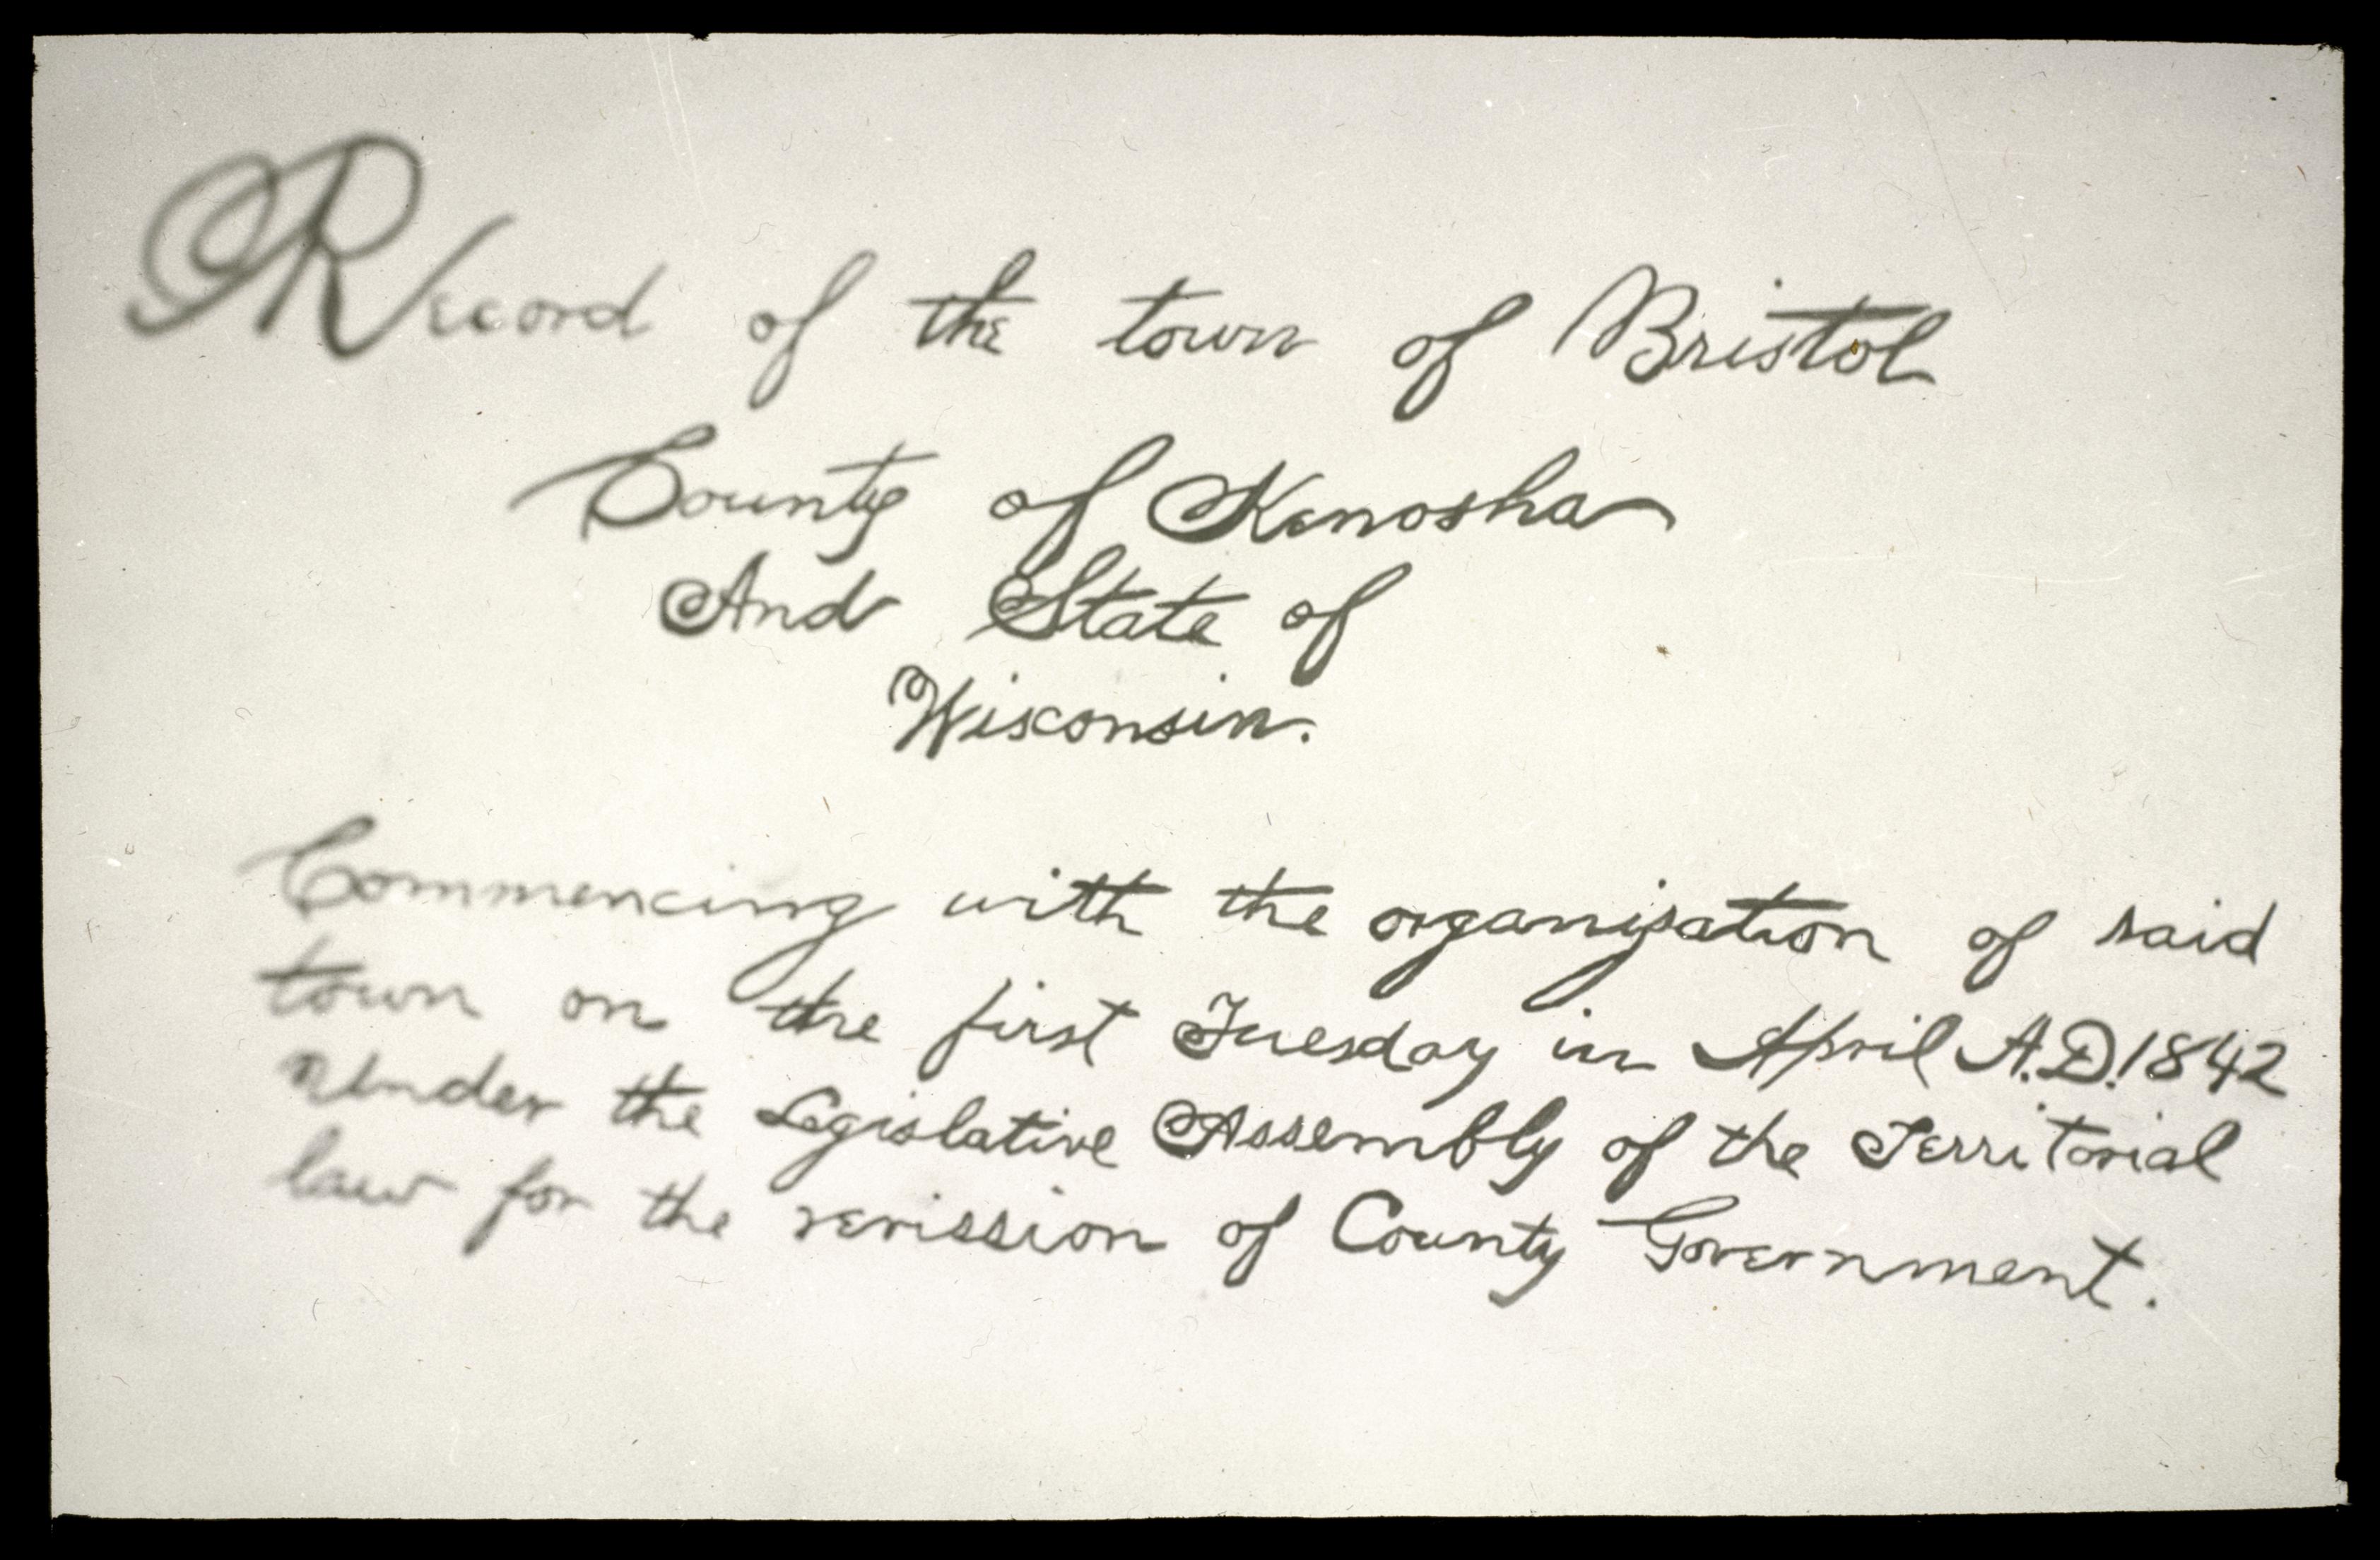 Record of the town of Bristol
County of Kenosha
And State of
Wisconsin.
Commencing with the organization of said
town on the first Tuesday in April A.D. 1842
Under the Legislative Assembly of the Territorial
law for the revission of County Government.